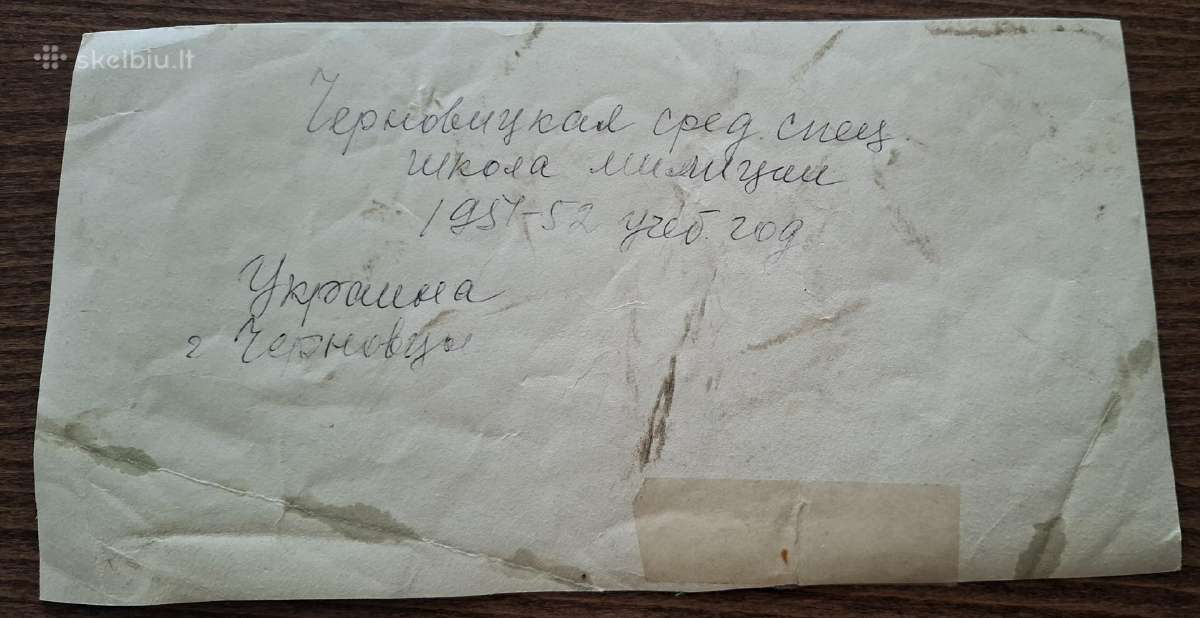 skelbiu.lt
Черновицкая сред. спец.
школа милиции
1951-52 учеб. год
Украина
г Черновцы